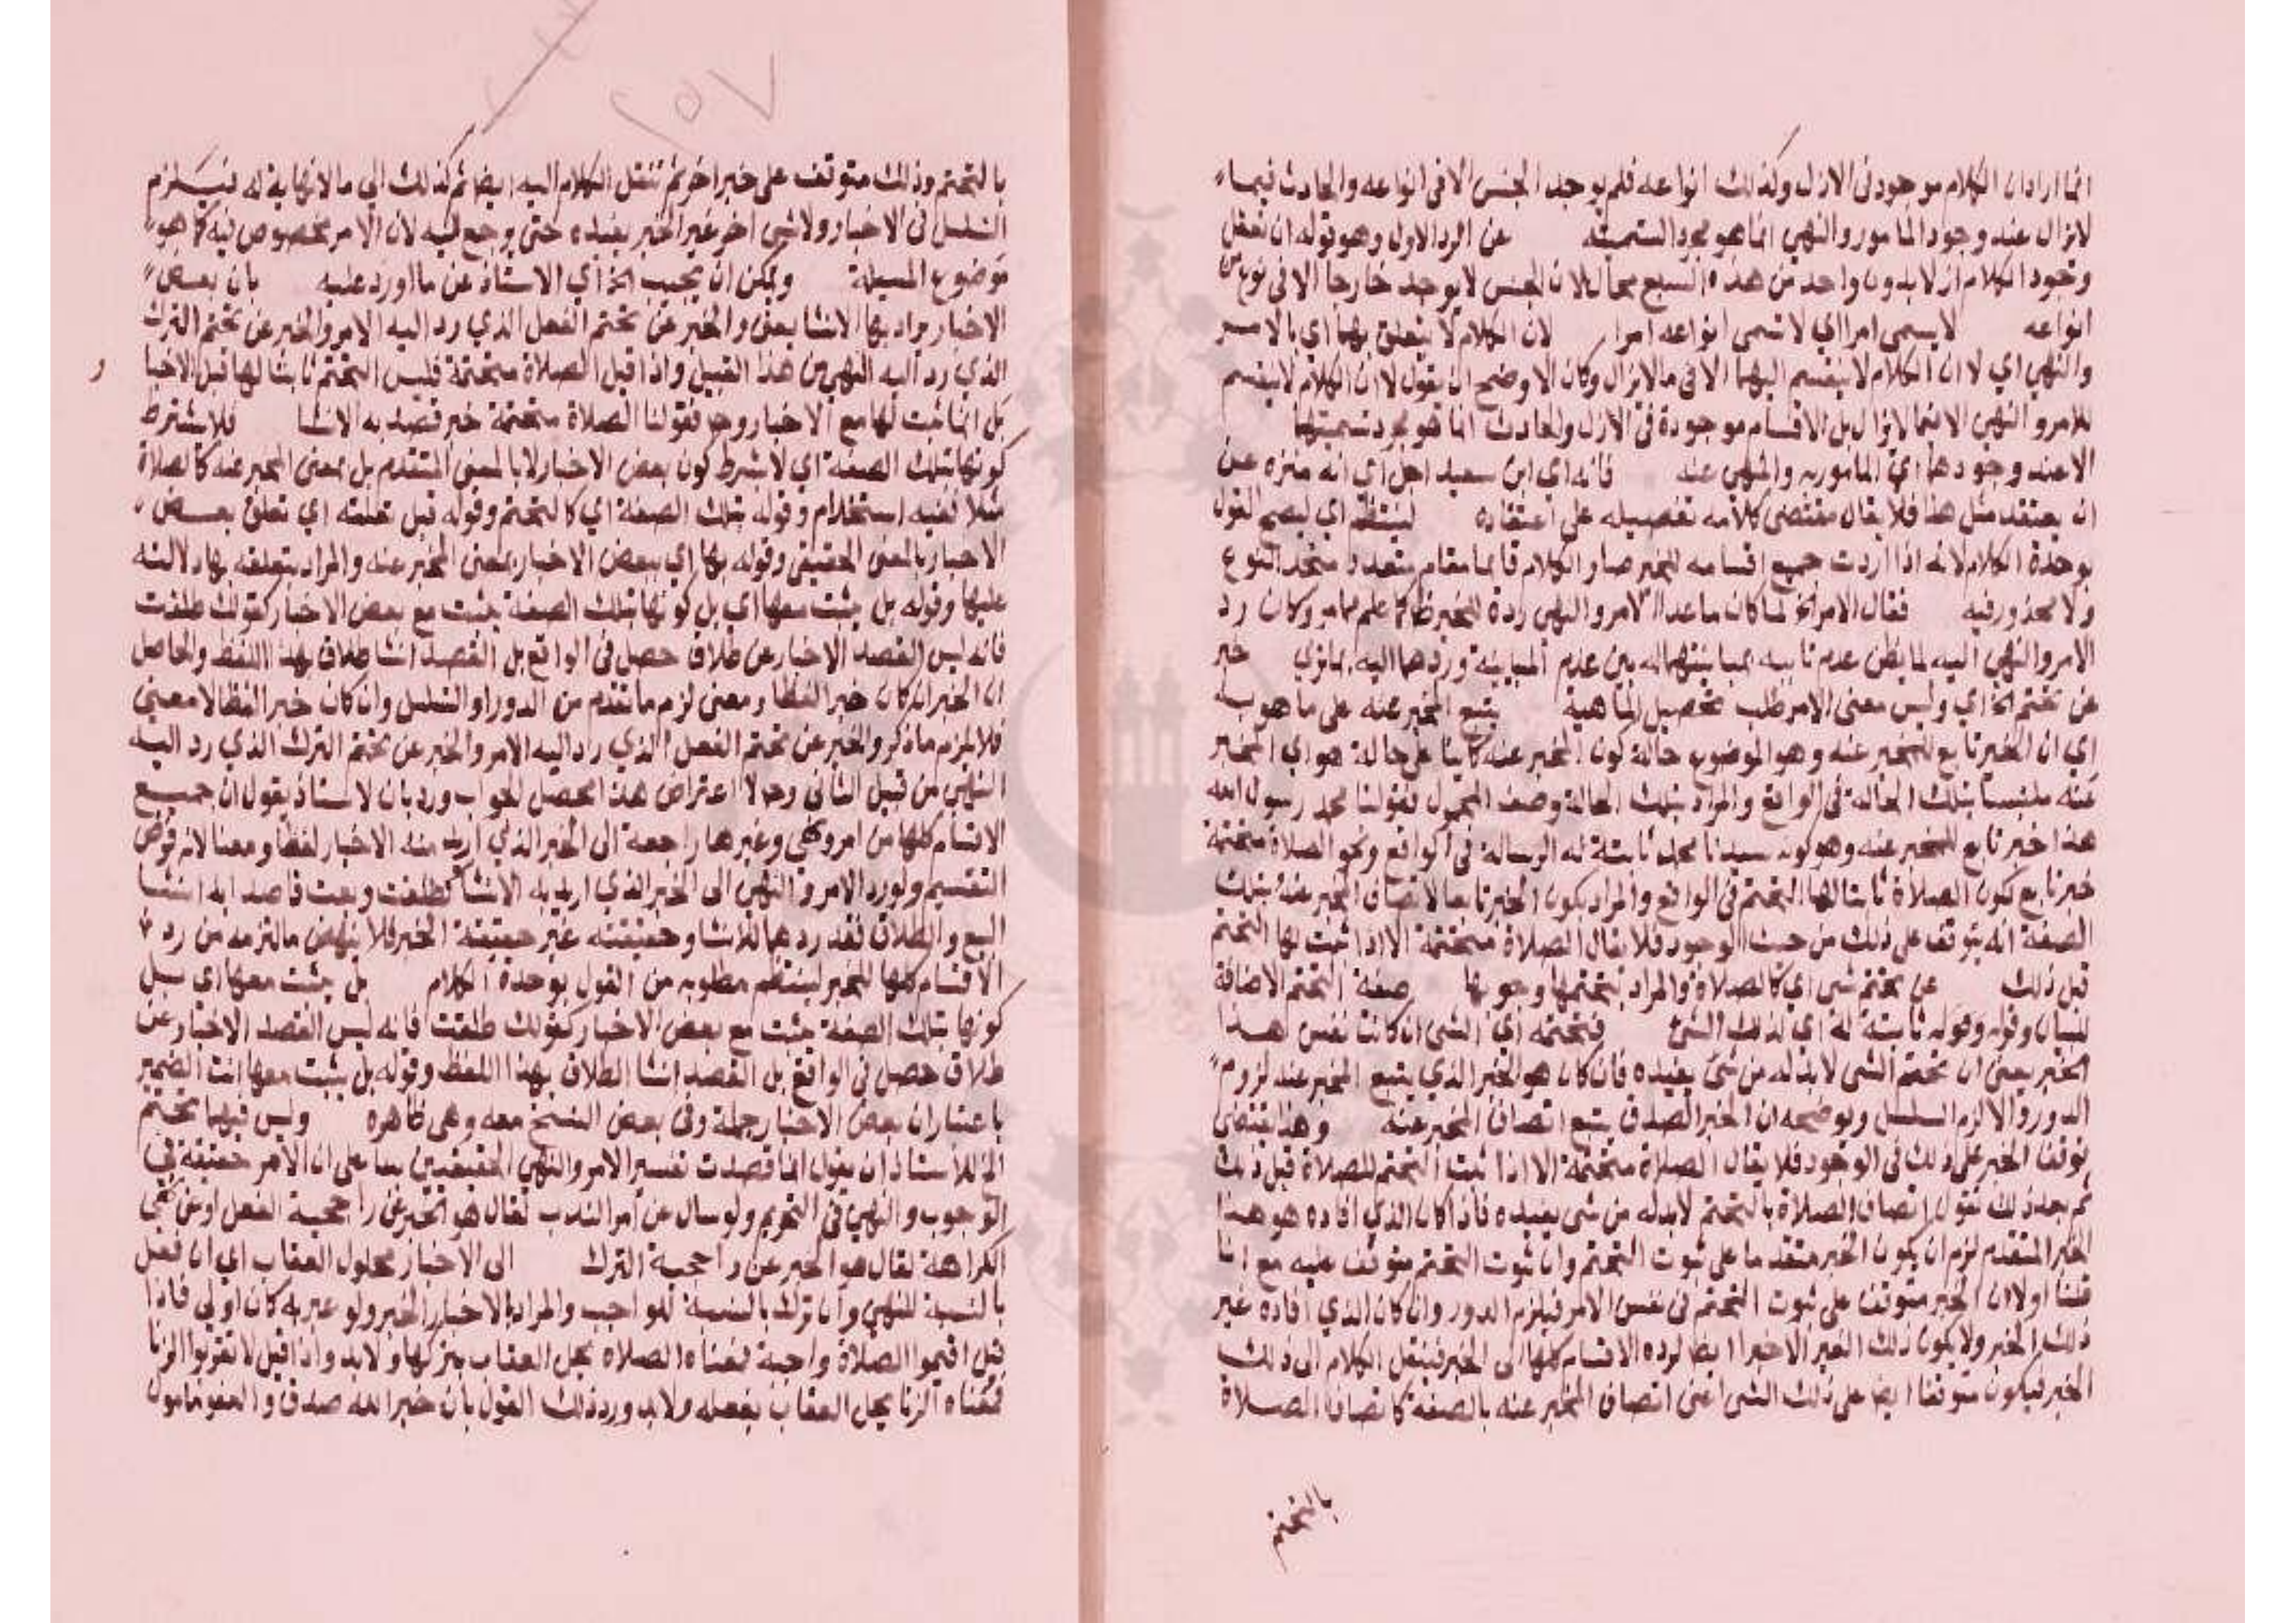 انما اراد ان الكلام موجود في الازل وكذلك انواعه فلم يوجد الجنس الا في انواعه والحادث فيما
لا يزال عند وجود المامور والنهي انما هو مجرد التسمية عن الرد الاول وهو قوله ان تعقل
وجود الكلام ازلا بدون واحد من هذه السبع محال لان الجنس لا يوجد خارجا الا في نوع من
انواعه لا يسمى امرا اي لا تسمى انواعه امرا لان الكلام لا يتعلق بهما اي بالامر
والنهي اي لا ان الكلام لا ينقسم اليهما الا في ما لا يزال وكان الاوضح ان يقول لا ان الكلام لا ينقسم
للامر والنهي الا فيما لا يزال بل الاقسام موجودة في الازل والحادث انما هو مجرد تسميتها
الا عند وجودها اي المامور به والمنهى عنه فانه اي ابن سعيد اجل اي انه منزه عن
ان يعتقد مثل هذا فلا يقال مقتضى كلامه تفصيله على اعتقاده لينتظم اي ليصح القول
بوحدة الكلام لانه اذا اردت جميع اقسامه للخبر صار الكلام قايما مقام متعدد متحد النوع
ولا محذور فيه فقال الامر الخ لما كان ما عدا الامر والنهي رده للخبر ظاهر كما علم مما مر وكان رد
الامر والنهي اليه لما يظن عدم تاتيه لمباينتهما له بين عدم المباينة وردهما اليه بما تري خبر
عن تحتم الخ اي وليس معنى الامر طلب تحصيل الماهية يتبع المخبر عنه على ما هو به
اي ان الخبر تابع للمخبر عنه وهو الموضوع حالة كون المخبر عنه كاينا على حالة هو اي المخبر
عنه ملتبسا بتلك الحالة في الواقع والمراد بتلك الحالة وصف المحمول فقولنا محمد رسول الله
هذا خبر تابع للمخبر عنه وهو كون سيدنا محمد ثابتة له الرسالة في الواقع ونحو الصلاة متحتمة
خبر تابع كون الصلاة ثابتا لها التحتم في الواقع والمراد بكون الخبر تابعا لاتصاف المخبر عنه بتلك
الصفة انه يتوقف على ذلك من حيث الوجود فلا يقال الصلاة متحتمة الا اذا ثبت لها التحتم
قبل ذلك عن تحتم شي اي كالصلاة والمراد بتحتمها وجوبها صفة التحتم الاضافة
للبيان وقوله وقوله ثابتة له اي لذلك الشئ فتحتمه اي الشي ان كانت نفس هذا
الخبر يعني ان تحتم الشي لا بد له من شئ يفيده فان كان هو الخبر الذي يتبع المخبر عنه لزوم
الدور والا لزم التسلسل وتوضيحه ان الخبر الصدق يتبع اتصاف المخبر عنه وهذا يقتضي
توقف الخبر على ذلك في الوجود فلا يقال الصلاة متحتمة الا اذا ثبت التحتم للصلاة قبل ذلك
ثم بعد ذلك نقول اتصاف الصلاة بالتحتم لا بد له من شي يفيده فاذا كان الذي افاده هو هذا
الخبر المتقدم لزم ان يكون الخبر متقدما على ثبوت التحتم وان ثبوت التحتم متوقف عليه مع انا
قلنا اولا ان الخبر متوقف على ثبوت التحتم في نفس الامر فيلزم الدور وان كان الذي افاده غير
ذلك الخبر ولا يكون ذلك الغير الا خبرا ايضا لرده الاقسام كلها الى الخبر فينتقل الكلام الى ذلك
الخبر فيكون متوقفا ايضا على ذلك الشي اعني اتصاف المخبر عنه بالصفة كاتصاف الصلاة
بالتحتم
٢٥٧
بالتحتم وذلك متوقف على خبر اخر ثم ننقل الكلام اليه ايضا ثم كذلك الي ما لا نهاية له فيستلزم
التسلسل في الاخبار ولا شي اخر غير الخبر يفيده حتى يرجع اليه لان الامر مخصوص فيه كما هو
موضوع المسيلة ويمكن ان يجيب الخ اي الاستاذ عن ما اورد عليه بان بعض
الاخبار يراد بها الانشا يعني والخبر عن تحتم الفعل الذي رد اليه الامر والخبر عن تحتم الترك
الذي رد اليه النهي من هذا القبيل واذا قيل الصلاة متحتمة فليس التحتم ثابتا لها قبل الاخبا
ر
بل انما ثبت لها مع الاخبار وحو فقولنا الصلاة متحتمة خبر قصد به الانشا فلا يشترط
كونها بتلك الصفة اي لا شرط كون بعض الاخبار لا بالمعنى المتقدم بل بمعنى المخبر عنه كالصلاة
مثلا ففيه استخدام وقوله بتلك الصفة اي كالتحتم وقوله قبل تعلقه اي تعلق بعض
الاخبار بالمعنى الحقيقي وقوله بها اي ببعض الاخبار بمعنى المخبر عنه والمراد بتعلقه بها دلالته
عليها وقوله بل يثبت معها اي بل كونها بتلك الصفة يثبت مع بعض الاخبار كقولك طلقت
فانه ليس القصد الاخبار عن طلاق حصل في الواقع بل القصد انشا طلاق بهذا اللفظ والحاصل
ان الخبر ان كان خبرا لفظا ومعنى لزم ما تقدم من الدور او التسلسل وان كان خبرا لفظا لا معنى
فلا يلزم ما ذكر والخبر عن تحتم الفعل الذي رد اليه الامر والخبر عن تحتم الترك الذي رد اليه
النهي من قبيل الثاني وحو لا اعتراض هذا محصل الجواب ورد بان الاستاذ يقول ان جميع
الاقسام كلها من امر ونهي وغيرها راجعة الى الخبر الذي اريد منه الاخبار لفظا ومعنا لانه فرض
التقسيم ولو رد الامر والنهي الى الخبر الذي اريد به الانشا كطلقت وبعت قاصدا به انشا
البيع والطلاق فقد ردهما للانشا وحقيقته غير حقيقة الخبر فلا ينهض ما التزمه من رد
الاقسام كلها للخبر لينتظم مطلوبه من القول بوحدة الكلام بل يثبت معها اي بل
كونها بتلك الصفة يثبت مع بعض الاخبار كقولك طلقت فانه ليس القصد الاخبار عن
طلاق حصل في الواقع بل القصد انشا الطلاق بهذا اللفظ وقوله بل يثبت معها انث الضمير
باعتبار ان بعض الاخبار جملة وفي بعض النسخ معه وهي ظاهرة وليس فيهما تحتم
الخ للاستاذ ان يقول انما قصدت تفسير الامر والنهي الحقيقيين بنا على ان الامر حقيقة في
الوجوب والنهي في التحريم ولو سال عن امر الندب لقال هو الخبر عن راجحية الفعل او عن نهي
الكراهة لقال هو الخبر عن راجحية الترك الى الاخبار بحلول العقاب اي ان فعل
بالنسبة للنهي وان ترك بالنسبة للواجب والمراد بالاخبار الخبر ولو عبر به كان اولي فاذا
قيل اقيموا الصلاة واجبة فمعناه الصلاه يحل العقاب بتركها ولا بد واذا قيل لا تقربوا الزنا
فمعناه الزنا يحل العقاب بفعله ولا بد ورد ذلك القول بان خبر الله صدق والعفو مامول